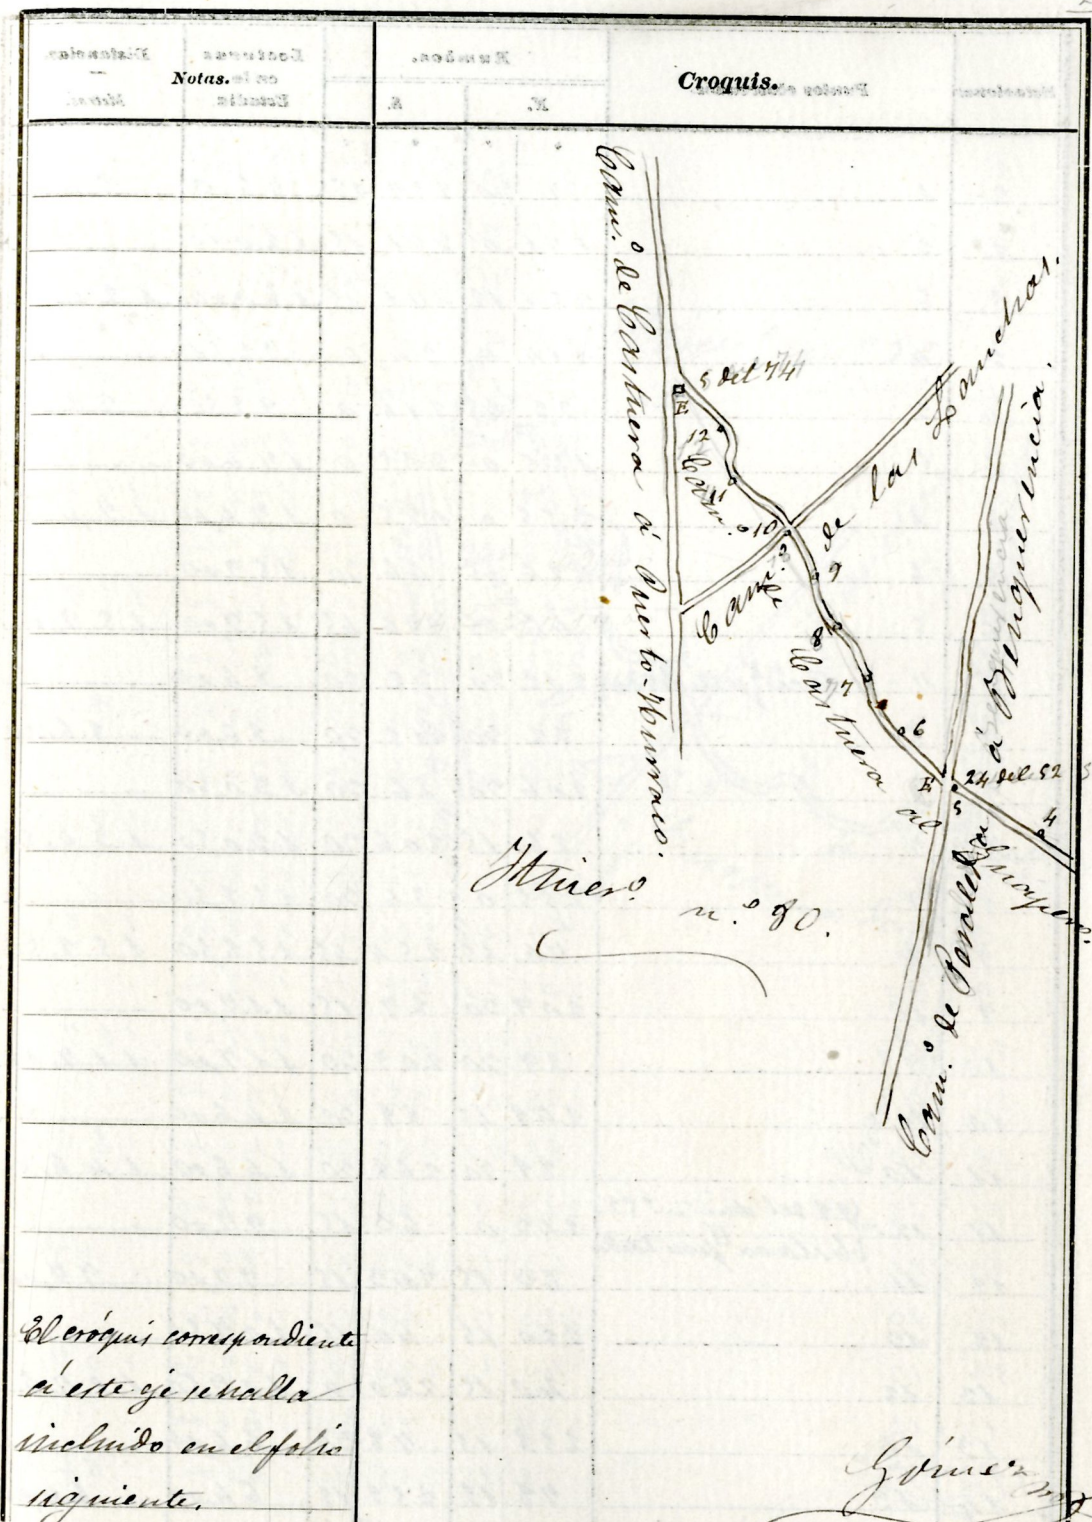 Notas.
Croquis.
Cam.º de Castuera á Puerto-Hurraco.
5 del 74
E
12
11
10
Cam.º de Castuera al
Cam.º de las Lanchas.
9
8
7
6
E
24 del 52
5
4
Cam.º de á Benquerencia.
Itiner.º
n.º 80.
El cróquis correspondiente
á este eje se halla
incluido en el folio
siguiente.
Gómez